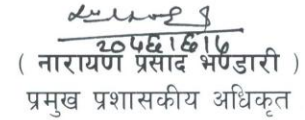 २०५६।६।५
( नारायण प्रसाद भण्डारी )
प्रमुख प्रशासकीय अधिकृत